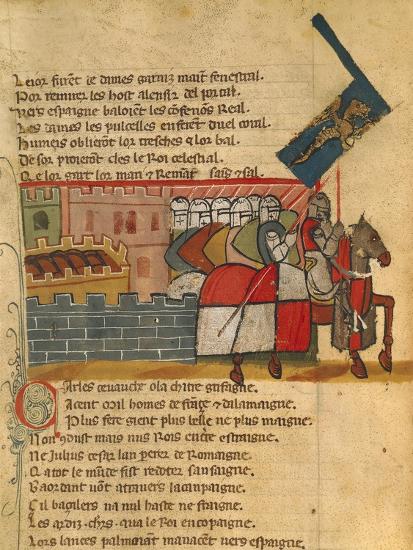 Le ior furēt de dames garniz maīt fenestral.
Por remirer les host alensir del portal.
Vers espaigne baloiēt les cōfenōs Real.
Les dames les pulcelles enfirēt duel coral.
Humeis oblierōt lor tresches 7 lor bal.
De sor proierēt cles le Roi celestial.
Qe lor gart lor mari 7 Remāt saīs 7 sal.
Carles cevauche o la chiere grifaigne.
Acent mil homes de frāçe 7 dalamaigne.
Plus fere gient plus belle ne plus maigne.
Non 9dust mais nus Rois entre espraigne.
Ne Julius cesar lan perer de Romaigne.
Q a tot le mōde fist redoter san saigne.
Baordant vōt atravers la canpaigne.
Cil bagilers na nul haste ne sfraigne.
Les ardiz .chrs. qua le Roi en copaigne.
Lors lances palmoiant manacēt vers espaigne.